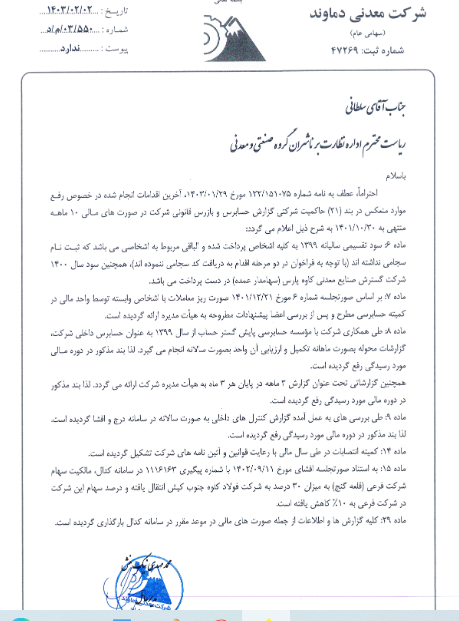 شرکت معدنی دماوند
(سهامی عام)
شماره ثبت: ۴۷۲۶۹
تاریخ: ۱۴۰۳/۰۲/۰۲
شماره: ۰۳/۵۵۰/م/د
پیوست: ندارد
جناب آقای سلطانی
ریاست محترم اداره نظارت بر ناشران گروه صنعتی و معدنی
باسلام
احتراماً، عطف به نامه شماره ۱۲۲/۱۵۱۰۷۵ مورخ ۱۴۰۳/۰۱/۲۹، آخرین اقدامات انجام شده در خصوص رفع
موارد منعکس در بند (۲۱) حاکمیت شرکتی گزارش حسابرس و بازرس قانونی شرکت در صورت های مالی ۱۰ ماهه
منتهی به ۱۴۰۱/۱۰/۳۰ به شرح ذیل اعلام می گردد:
ماده ۶: سود تقسیمی سالیانه ۱۳۹۹ به کلیه اشخاص پرداخت شده و الباقی مربوط به اشخاصی می باشد که ثبت نام
سجامی نداشته اند (با توجه به فراخوان در دو مرحله اقدام به دریافت کد سجامی ننموده اند)، همچنین سود سال ۱۴۰۰
شرکت گسترش صنایع معدنی کاوه پارس (سهامدار عمده) در دست پرداخت می باشد.
ماده ۷: بر اساس صورتجلسه شماره ۶ مورخ ۱۴۰۱/۱۲/۲۱ صورت ریز معاملات با اشخاص وابسته توسط واحد مالی در
کمیته حسابرسی مطرح و پس از بررسی اعضا پیشنهادات مطروحه به هیأت مدیره ارائه گردیده است.
ماده ۸: طی همکاری شرکت با مؤسسه حسابرسی پایش گستر حساب از سال ۱۳۹۹ به عنوان حسابرس داخلی شرکت،
گزارشات محوله بصورت ماهانه تکمیل و ارزیابی آن واحد بصورت سالانه انجام می گیرد. لذا بند مذکور در دوره مالی
مورد رسیدگی رفع گردیده است.
همچنین گزارشاتی تحت عنوان گزارش ۳ ماهه در پایان هر ۳ ماه به هیأت مدیره شرکت ارائه می گردد. لذا بند مذکور
در دوره مالی مورد رسیدگی رفع گردیده است.
ماده ۹: طی بررسی های به عمل آمده گزارش کنترل های داخلی به صورت سالانه در سامانه درج و افشا گردیده است.
لذا بند مذکور در دوره مالی مورد رسیدگی رفع گردیده است.
ماده ۱۴: کمیته انتصابات در طی سال مالی با رعایت قوانین و آئین نامه های شرکت تشکیل گردیده است.
ماده ۱۵: به استناد صورتجلسه افشای مورخ ۱۴۰۲/۰۹/۱۱ با شماره پیگیری ۱۱۱۶۱۶۳ در سامانه کدال، مالکیت سهام
شرکت فرعی (قلعه گنج) به میزان ۳۰ درصد به شرکت فولاد کاوه جنوب کیش انتقال یافته و درصد سهام این شرکت
در شرکت فرعی به ۱۰٪ کاهش یافته است.
ماده ۲۹: کلیه گزارش ها و اطلاعات از جمله صورت های مالی در موعد مقرر در سامانه کدال بارگذاری گردیده است.